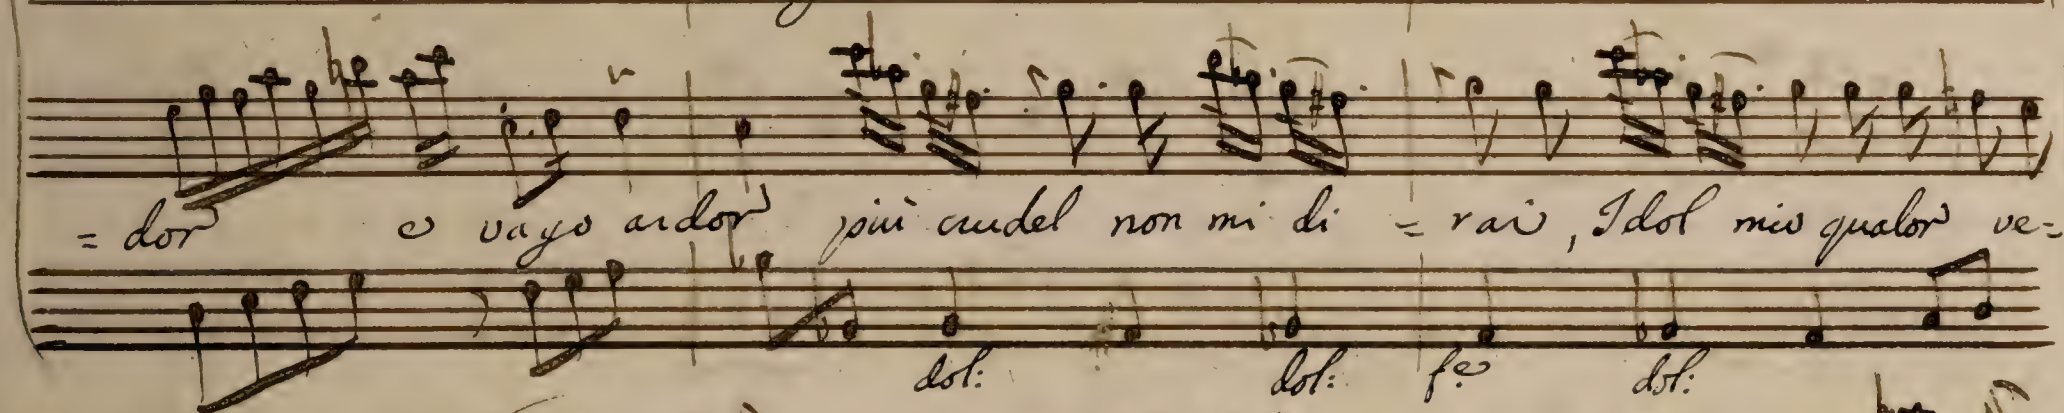 = dor e vago ardor più crudel non mi di = rai, Idol mio qualor ve=
dol: dol: fe dol: